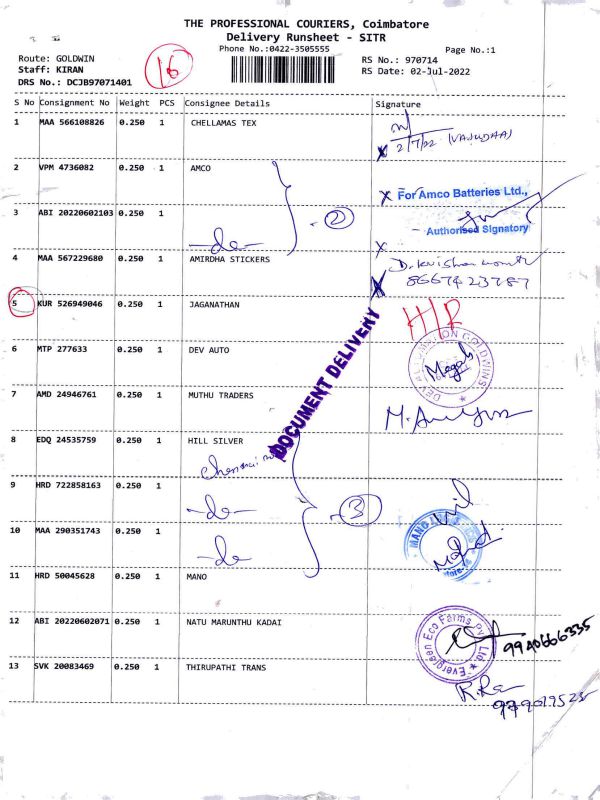 THE PROFESSIONAL COURIERS, Coimbatore
Delivery Runsheet - SITR
Phone No.:0422-3505555
Page No.:1
Route: GOLDWIN
RS No.: 970714
Staff: KIRAN
RS Date: 02-Jul-2022
DRS No.: DCJB97071401
16
S No Consignment No Weight PCS Consignee Details Signature
1 MAA 566108826 0.250 1 CHELLAMAS TEX
2/7/22
2 VPM 4736082 0.250 1 AMCO
X For Amco Batteries Ltd.,
2
Authorised Signatory
3 ABI 20220602103 0.250 1
-do-
X
4 MAA 567229680 0.250 1 AMIRDHA STICKERS
8667423787
5 KUR 526949046 0.250 1 JAGANATHAN
DOCUMENT DELIVERY
6 MTP 277633 0.250 1 DEV AUTO
7 AMD 24946761 0.250 1 MUTHU TRADERS
8 EDQ 24535759 0.250 1 HILL SILVER
9 HRD 722858163 0.250 1
-do-
3
10 MAA 290351743 0.250 1
-do-
11 HRD 50045628 0.250 1 MANO
12 ABI 20220602071 0.250 1 NATU MARUNTHU KADAI
Evergreen Eco Farms Pvt Ltd
9940666335
13 SVK 20083469 0.250 1 THIRUPATHI TRANS